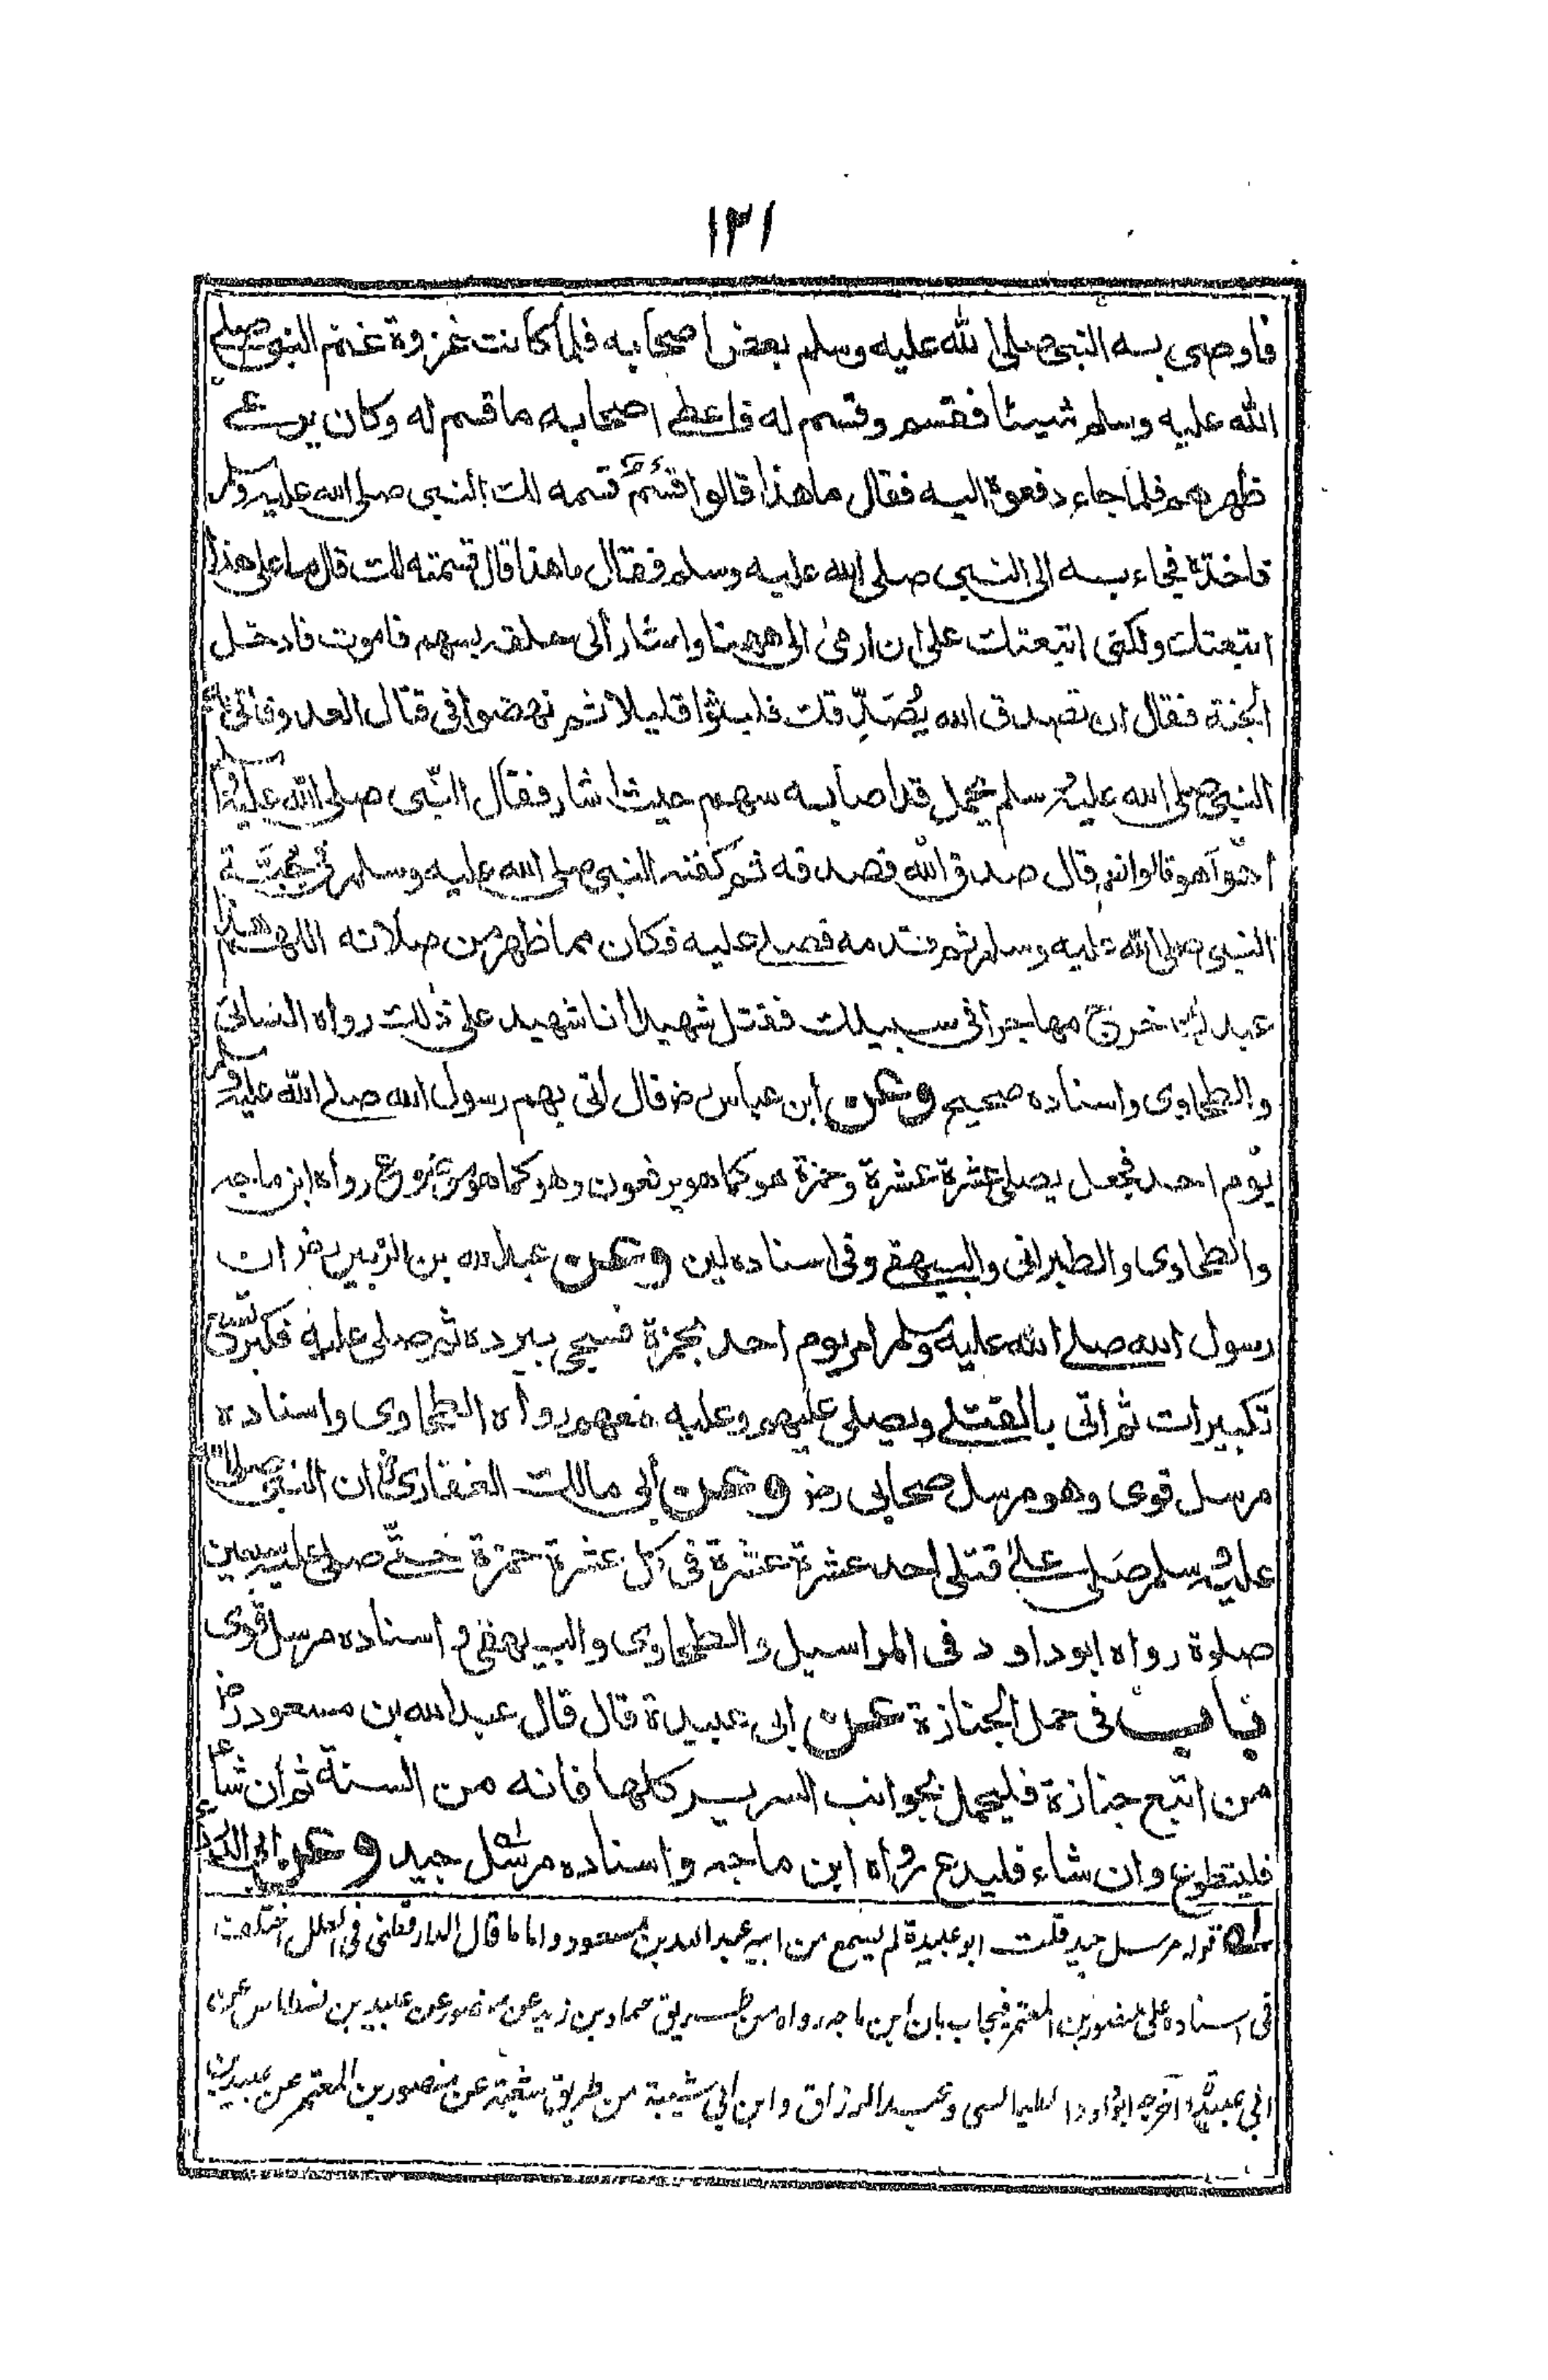 ١٣١
فاوصى به النبي صلى الله عليه وسلم بعض اصحابه فلما كانت غزوة غنم النبي صلى
الله عليه وسلم شيئا فقسم وقسم له فاعطى اصحابه ما قسم له وكان يرعى
ظهرهم فلما جاء دفعوه اليه فقال ما هذا قالوا قسم قسمه لك النبي صلى الله عليه وسلم
فاخذه فجاء به الى النبي صلى الله عليه وسلم فقال ما هذا قال قسمته لك قال ما على هذا
اتبعتك ولكنى اتبعتك على ان ارمى الى ههنا واشار الى حلقه بسهم فاموت فادخل
الجنة فقال ان تصدق الله يصدقك فلبثوا قليلا ثم نهضوا فى قتال العدو فاتى به
النبي صلى الله عليه وسلم يحمل قد اصابه سهم حيث اشار فقال النبى صلى الله عليه وسلم
اهو اهو قالوا نعم قال صدق الله فصدقه ثم كفنه النبي صلى الله عليه وسلم فى جبة
النبي صلى الله عليه وسلم ثم قدمه فصلى عليه فكان مما ظهر من صلاته اللهم هذا
عبدك خرج مهاجرا فى سبيلك فقتل شهيدا انا شهيد على ذلك رواه النسائى
والطحاوى واسناده صحيح وعن ابن عباس رض قال اتى بهم رسول الله صلى الله عليه وسلم
يوم احد فجعل يصلى عشرة عشرة وحمزة هو كما هو يرفعون وهو كما هو موضوع رواه ابن ماجه
والطحاوى والطبرانى والبيهقى وفى اسناده لين وعن عبد الله بن الزبير رض ان
رسول الله صلى الله عليه وسلم امر يوم احد بحمزة فسجى ببرده ثم صلى عليه فكبر تسع
تكبيرات ثم اتى بالقتلى ويصلى عليهم وعليه معهم رواه الطحاوى واسناده
مرسل قوى وهو مرسل صحابى رض وعن ابى مالك الغفارى ان النبى صلى الله
عليه وسلم صلى على قتلى احد عشرة عشرة فى كل عشرة حمزة حتى صلى عليه سبعين
صلوة رواه ابوداود فى المراسيل والطحاوى والبيهقى واسناده مرسل قوى
باب فى حمل الجنازة عن ابى عبيدة قال قال عبد الله بن مسعود رض
من اتبع جنازة فليحمل بجوانب السرير كلها فانه من السنة ثم ان شاء
فليتطوع وان شاء فليدع رواه ابن ماجه واسناده مرسل جيد وعن ابى الدرداء
له قوله مرسل جيد قلت ابو عبيدة لم يسمع من ابيه عبد الله بن مسعود واما ما قال الدارقطنى فى العلل اختلف
فى اسناده على منصور بن المعتمر فيجاب بان ابن ماجه رواه من طريق حماد بن زيد عن منصور عن عبيد بن نسطاس عن
ابى عبيدة واخرجه ابوداود الطيالسى وعبد الرزاق وابن ابى شيبة من طريق شعبة عن منصور بن المعتمر عن عبيد بن